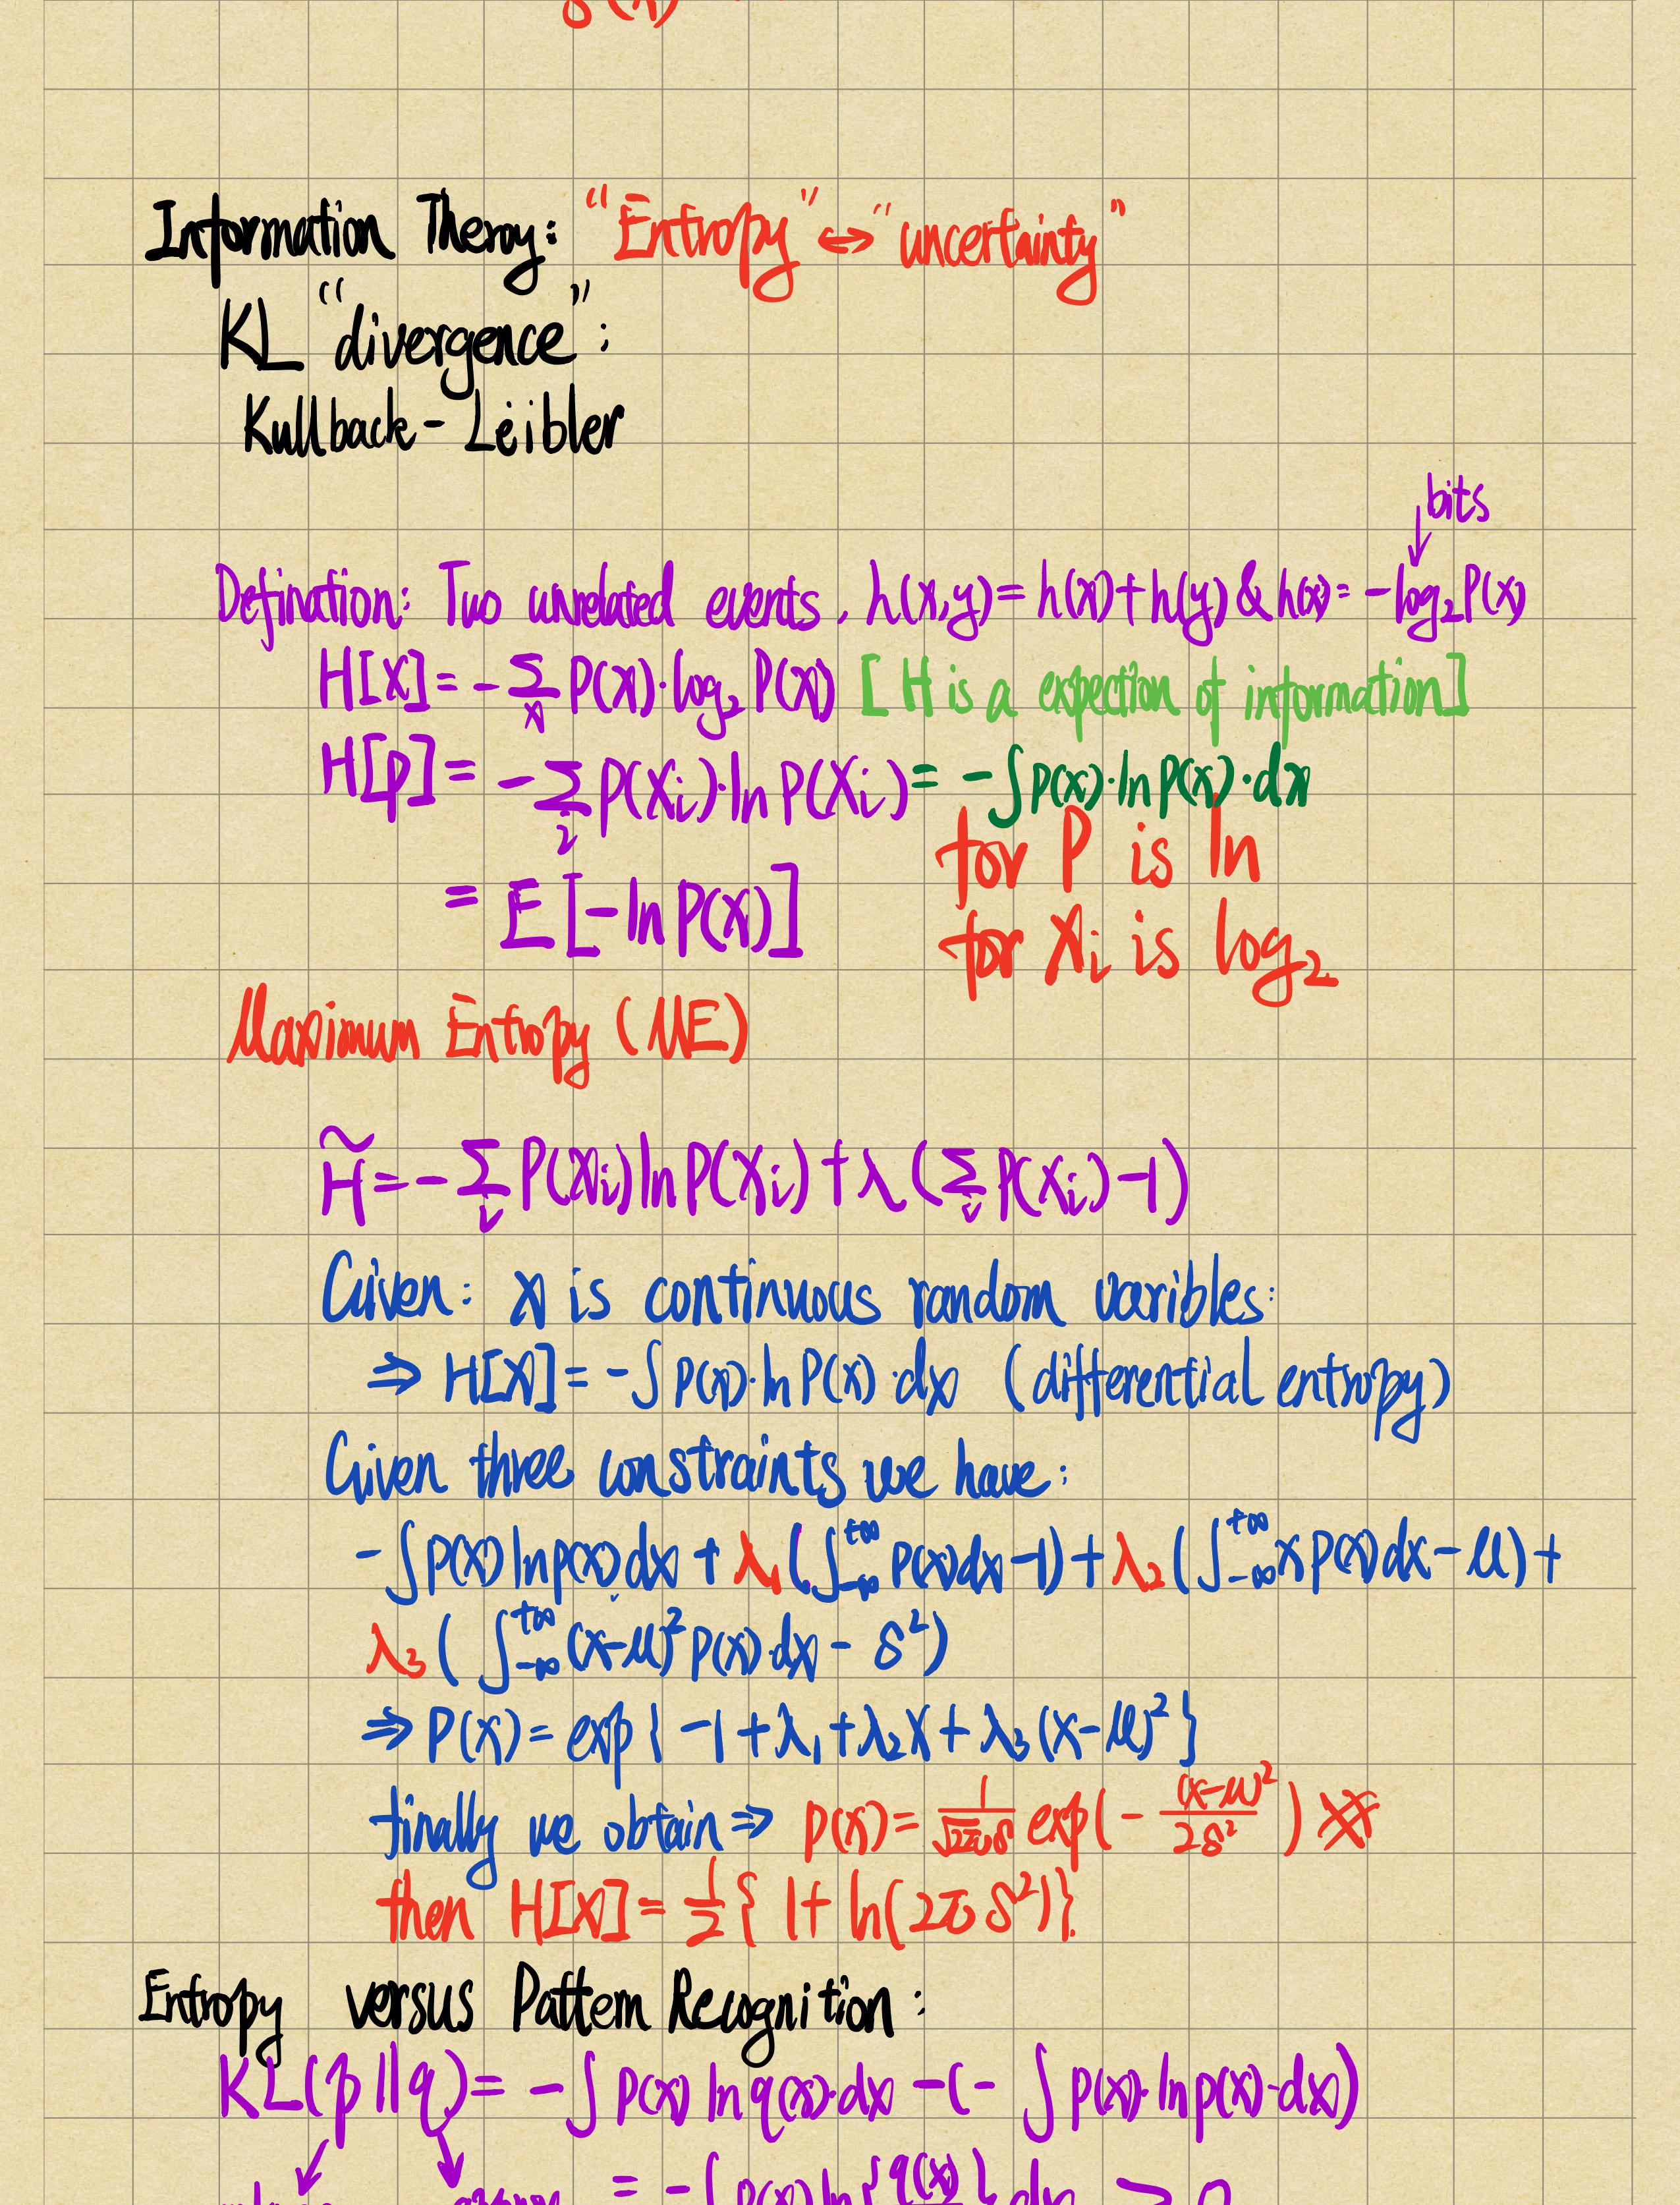 Information Theroy: "Entropy" ↔ "uncertainty"
KL "divergence":
Kullback-Leibler
bits
Defination: Two unrelated events, h(x,y)=h(x)+h(y) & h(x)= -log₂P(x)
H[X] = -∑ₓ P(x)·log₂ P(x) [H is a expection of information]
H[p] = -∑ᵢ P(Xᵢ)·ln P(Xᵢ) = -∫p(x)·ln p(x)·dx
for P is ln
= E[-ln P(x)]
for Xᵢ is log₂
Maximum Entropy (ME)
H̃ = -∑ᵢ P(xᵢ) ln P(xᵢ) + λ(∑ᵢ P(xᵢ) -1)
Given: x is continuous random varibles:
⇒ H[X] = -∫ P(x)·ln P(x)·dx (differential entropy)
Given three constraints we have:
-∫p(x) ln p(x) dx + λ₁(∫_{-∞}^{+∞} p(x)dx -1) + λ₂(∫_{-∞}^{+∞} x p(x) dx - μ) +
λ₃(∫_{-∞}^{+∞} (x-μ)² p(x)·dx - δ²)
⇒ P(x) = exp{ -1 + λ₁ + λ₂x + λ₃(x-μ)² }
finally we obtain ⇒ p(x) = 1/(√2π δ) exp(- (x-μ)²/2δ²)
then H[X] = 1/2 { 1 + ln(2πδ²)}.
Entropy versus Pattern Recognition:
KL(p||q) = -∫ p(x) ln q(x)·dx -(-∫ p(x)·ln p(x)·dx)